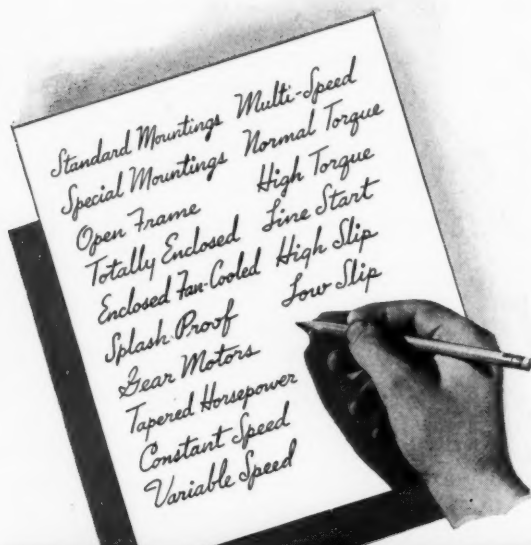 Standard Mountings
Special Mountings
Open Frame
Totally Enclosed
Enclosed Fan-Cooled
Splash-Proof
Gear Motors
Tapered Horsepower
Constant Speed
Variable Speed
Multi-Speed
Normal Torque
High Torque
Line Start
High Slip
Low Slip